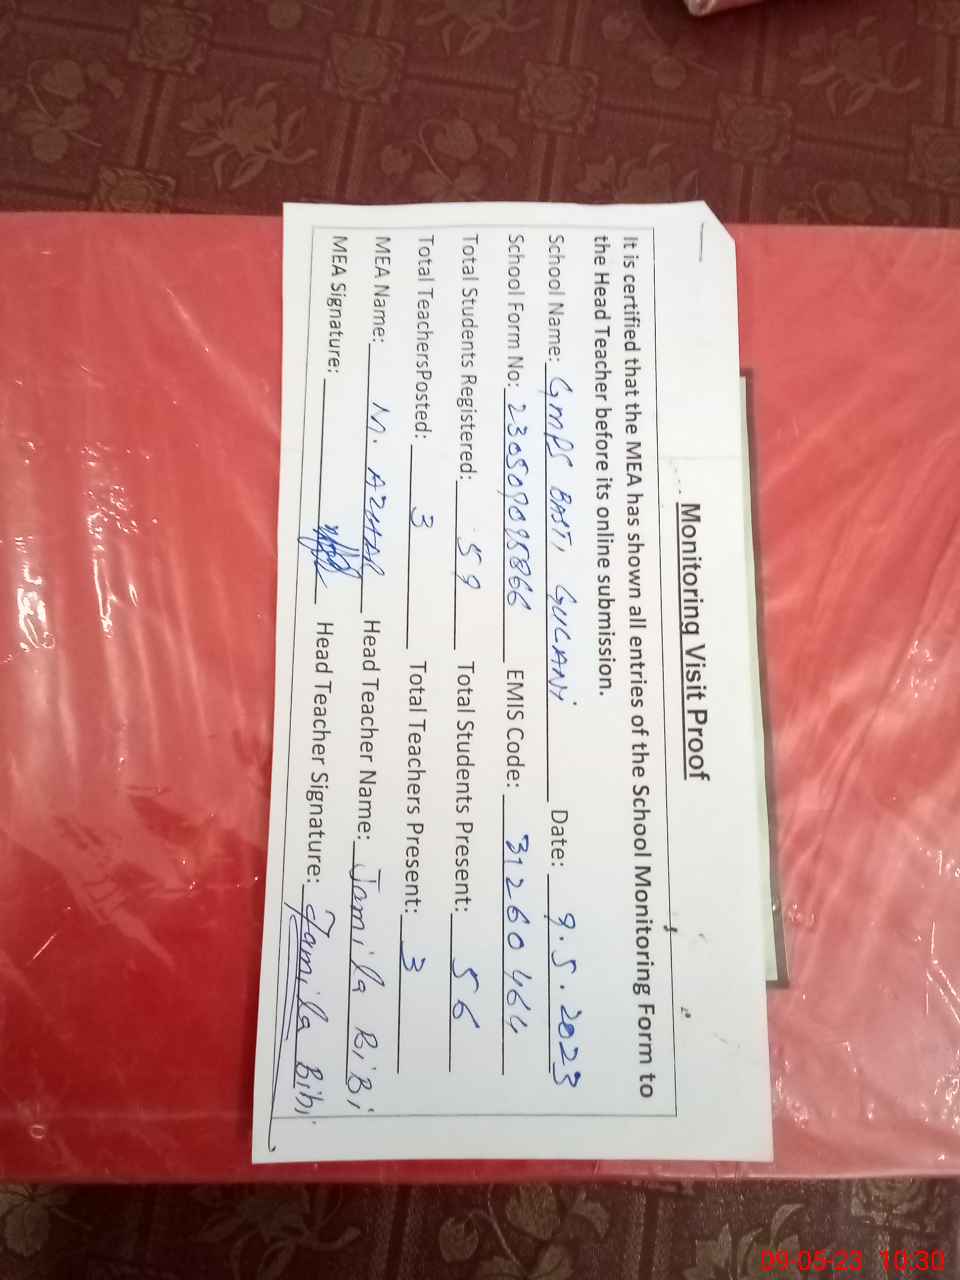 Monitoring Visit Proof
It is certified that the MEA has shown all entries of the School Monitoring Form to
the Head Teacher before its online submission.
School Name: GMPS BASTI GULANI Date: 9.5.2023
School Form No: 230509095866 EMIS Code: 31260464
Total Students Registered: 59 Total Students Present: 56
Total TeachersPosted: 3 Total Teachers Present: 3
MEA Name: M. AZHAR Head Teacher Name: Jamila BiBi
MEA Signature: Head Teacher Signature: Jamila Bibi
09-05-23 10:30